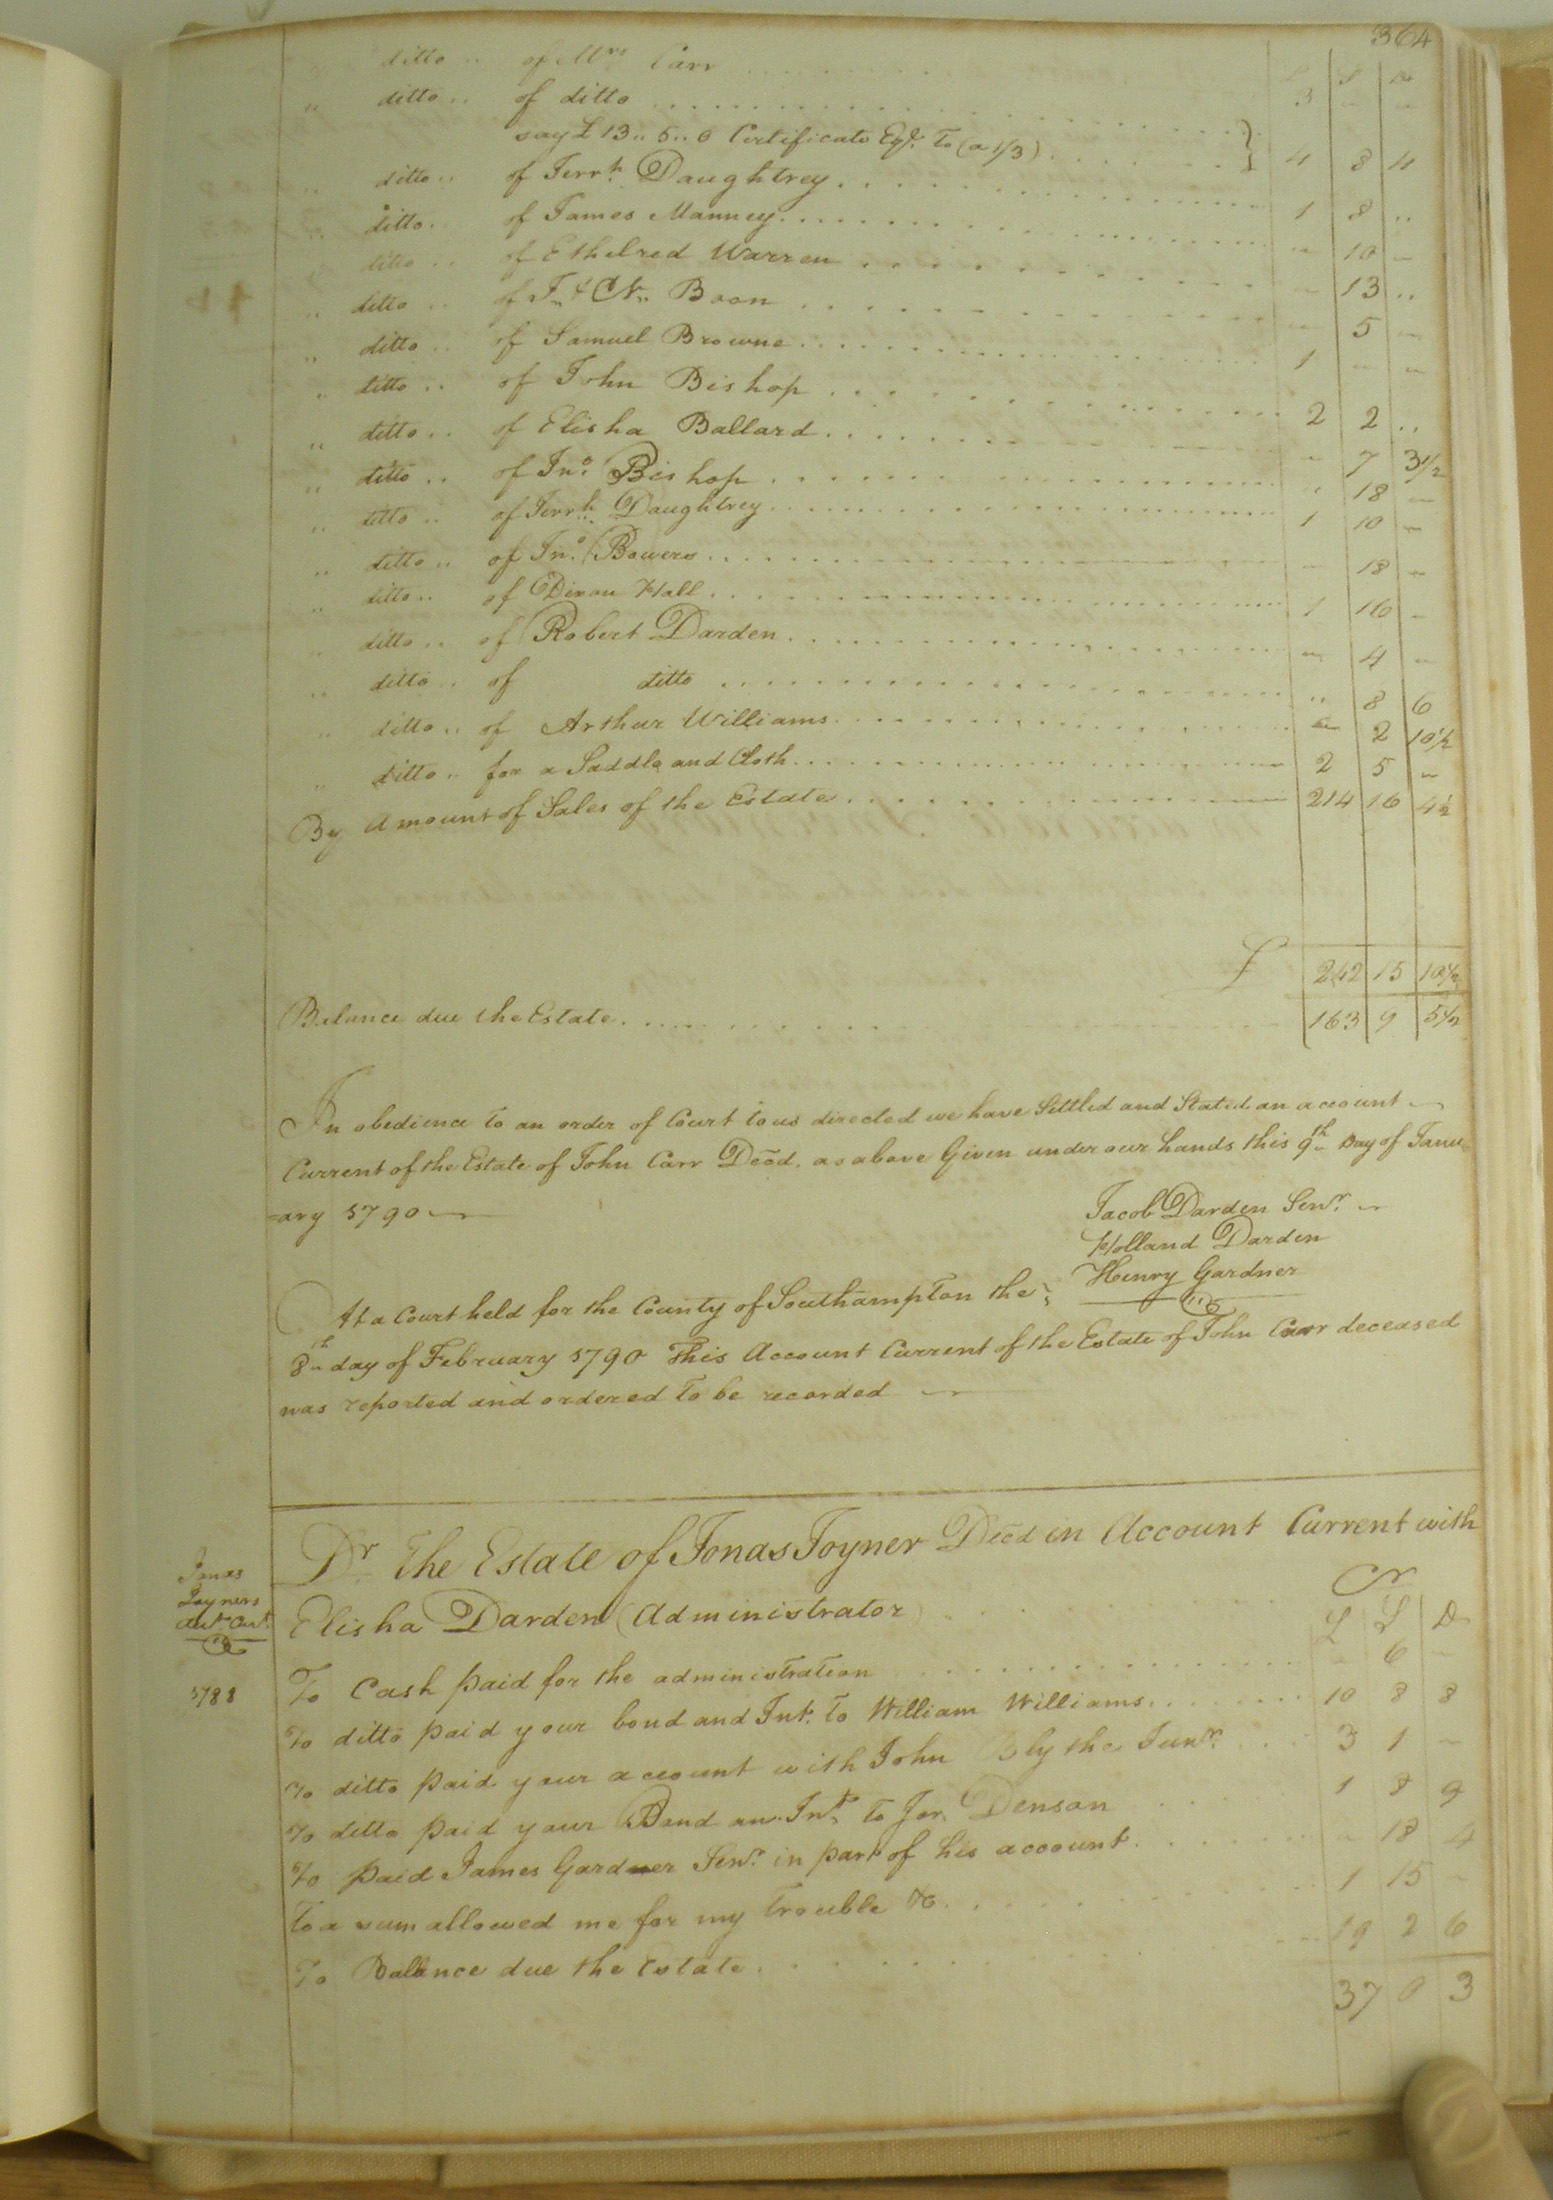 364
£ S D
" ditto .. of Mrs Carr 3 - -
" ditto .. of ditto
say £ 13 .. 5 .. 0 Certificate Eql. To (a 1/3) 4 8 4
" ditto .. of Jerrh. Daughtrey 1 8 ..
" ditto .. of James Manney - 10 -
" ditto .. of Ethelred Warren - 13 ..
" ditto .. of J. & N. Boon - 5 -
" ditto .. of Samuel Browne 1 - -
" ditto .. of John Bishop 2 2 ..
" ditto .. of Elisha Ballard - 7 3 1/2
" ditto .. of Jno. Bishop " 18 -
" ditto .. of Jerrh. Daughtrey 1 10 -
" ditto .. of Jno. Bowers - 18 -
" ditto .. of Dixon Hall 1 16 -
" ditto .. of Robert Darden - 4 -
" ditto .. of ditto .. 8 6
" ditto .. of Arthur Williams - 2 10 1/2
" ditto .. for a Saddle and Cloth 2 5 -
By Amount of Sales of the Estate 214 16 4 1/2
£ 242 15 10 1/2
Balance due the Estate 163 9 5 1/2
In obedience to an order of Court to us directed we have Settled and Stated an account
Current of the Estate of John Carr Decd. as above Given under our hands this 9th Day of Janu
=ary 1790
Jacob Darden Senr.
Holland Darden
Henry Gardner
At a Court held for the County of Southampton the
8th day of February 1790 This Account Current of the Estate of John Carr deceased
was reported and ordered to be recorded
Jonas
Joyners
Dr. The Estate of Jonas Joyner Decd in Account Current with
Elisha Darden (Administrator) Cr
£ S D
1788
To Cash paid for the administration - 6 -
To ditto paid your bond and Int. to William Williams 10 8 8
To ditto paid your account with John Blythe Junr. 3 1 -
To ditto paid your Bond an Int. to Jor. Denson 1 8 9
To paid James Gardner Senr. in part of his account - 18 4
To a sum allowed me for my trouble &c 1 15 -
To Balance due the Estate 19 2 6
37 0 3